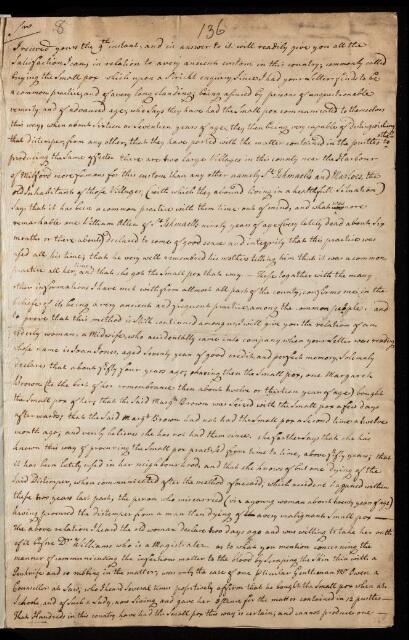 Sir 8 136
I received yours the 9th instant, and in answer to it will readily give you all the
Satisfaction I can, in relation to a very ancient custom in this country, commonly called
buying the Small pox which upon a Strict enquiry Since I had your Letter I find to be
a common practice, and of a very long standing, being assured by persons of unquestionable
veracity, and of advanced age, who Say they have had the Small pox communicated to themselves
this way when about Sixteen or Seventeen years of age, they then being very capable of distinguishing
that distemper from any other, that they have parted with the matter contained in the pustles to others
producing the Same effects. there are two large Villages in this county near the Harbour
of Milford more famous for this custom than any other namely St Ishmaells and Marloes, the
old Inhabitants of those Villages (with which they abound living in a healthfull Situation)
Say that it has been a common practice with them time out of mind, and what was more
remarkable one William Allen of St Ishmaells ninety years of age (very lately dead about Six
months or there abouts) declared to some of good sense and integrity that this practice was
used all his time, that he very well remembred his mother telling him that it was a common
practice all her, and that she got the Small pox that way — These together with the many
other informations I have met with from allmost all parts of the county, confirms me, in the
beliefe of its being a very ancient and frequent practice among the common people; and
to prove that this method is Still continued among us I will give you the relation of an
elderly woman a Midwife, who accidentally came into company when your Letter was reading
whose name is Joan Jones, aged Seventy years of good credit and perfect memory, Solemnly
declares that about fifty four years ago, having then the Small pox, one Margaret
Brown (to the best of her remembrance then about twelve or thirteen years of age) bought
the Small pox of her; that the Said Margt Brown was Seized with the Small pox a few days
afterwards; that the Said Margt Brown had not had the Small pox a Second time a twelve
month ago; and verily believes she has not had them since. she farther Says that she has
known this way of procuring the Small pox practised from time to time, above fifty years; that
it has been lately used in her neighbourhood and that she knows of but one dying of the
Said Distemper, when communicated after the method aforesaid, which accident happened within
these two years last past; the person who miscarried (viz a young woman about twenty years of age)
having procured the distemper from a man then dying of a very malignant Small pox —
the above relation I heard the old woman declare two days ago and was willing to take her oath
of it before Dr Williams who is a Magistrate. as to what you mention concerning the
manner of communicating the infectious matter to the blood by Scraping the Skin thin with a
Penknife and so rubbing in the matter; was only the case of one particular Gentleman Mr Owen a
Counsellor at Law, who I heard Several times positively affirm that he bought the Small pox when at
Schoole, and of such a Lady, now living, and gave her 3 Pence for the matter contained in 12 pustles —
That Hundreds in this county have had the Small pox this way is certain, and cannot produce one —